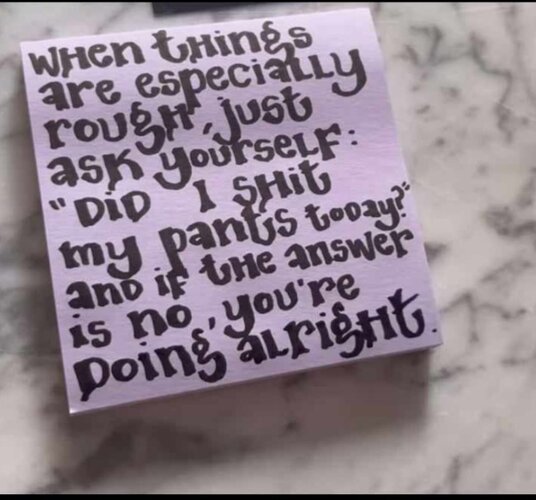 WHEN tHiNgs
are especiaLLy
rough, just
ask yourseLF:
"DiD I SHit
my pants toDay?"
anD iF tHe answer
is no, you're
Doing aLrigHt.